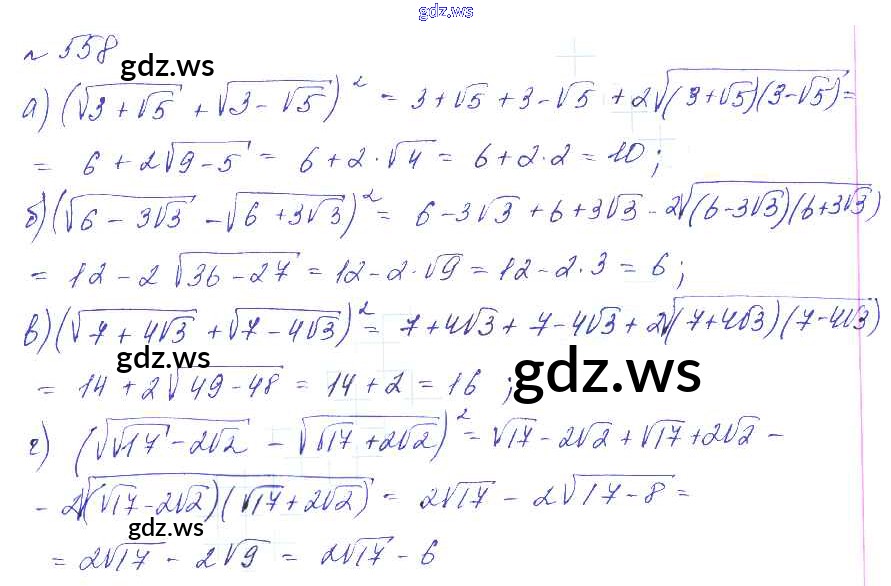 gdz.ws
№ 558
gdz.ws
а) (√(3+√5) + √(3-√5))² = 3+√5+3-√5 + 2√((3+√5)(3-√5)) =
= 6+2√(9-5) = 6+2·√4 = 6+2·2 = 10;
б) (√(6-3√3) - √(6+3√3))² = 6-3√3+6+3√3-2√((6-3√3)(6+3√3))
= 12-2√(36-27) = 12-2·√9 = 12-2·3 = 6;
в) (√(7+4√3) + √(7-4√3))² = 7+4√3+7-4√3+2√((7+4√3)(7-4√3))
gdz.ws
gdz.ws
= 14+2√(49-48) = 14+2 = 16;
г) (√(√17-2√2) - √(√17+2√2))² = √17-2√2+√17+2√2 -
- 2√((√17-2√2)(√17+2√2)) = 2√17 - 2√(17-8) =
gdz.ws
= 2√17 - 2√9 = 2√17 - 6